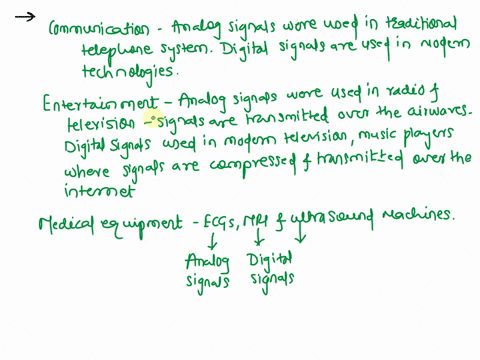 → Communication - Analog signals were used in traditional
telephone system. Digital signals are used in Modern
technologies.
Entertainment - Analog signals were used in radio &
television - signals are transmitted over the airwaves.
Digital signals used in modern television, music players
where signals are compressed & transmitted over the
internet
Medical equipment - ECGs, MRI & ultrasound machines.
Analog Digital
signals signals